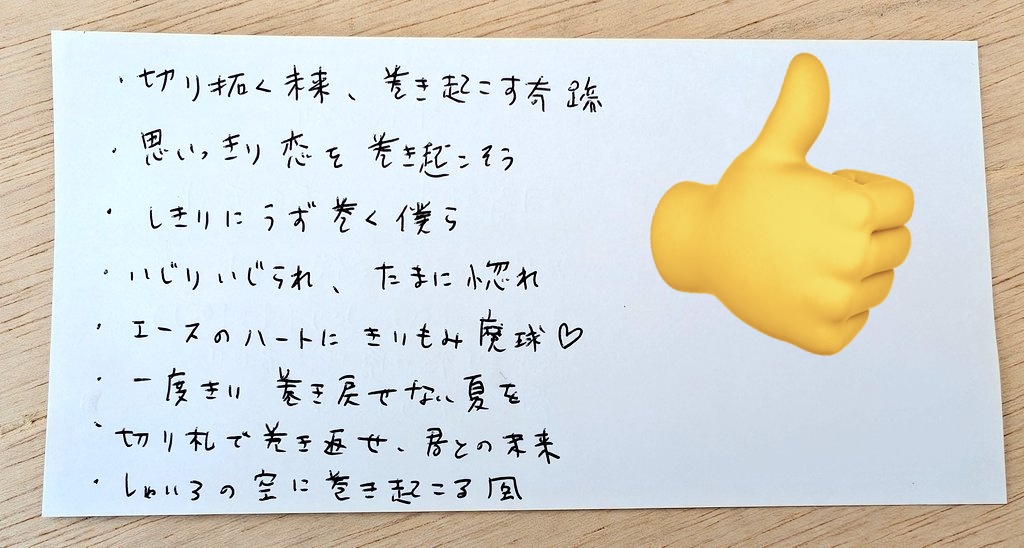 ・切り拓く未来、巻き起こす奇跡
・思いっきり恋を巻き起こそう
・しきりにうず巻く僕ら
・いじりいじられ、たまに惚れ
・エースのハートにきりもみ魔球♡
・一度きり 巻き戻せない夏を
・切り札で巻き返せ、君との未来
・しゅいろの空に巻き起こる風